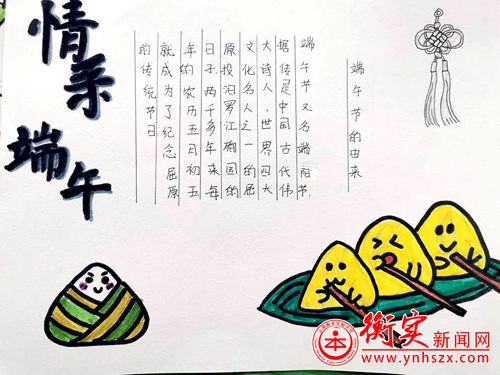 情亲
端午
端午节的由来
端午节又名端阳节,
据传是中国古代伟
大诗人、世界四大
文化名人之一的屈
原投汨罗江殉国的
日子两千多年来每
年的农历五月初五
就成为了纪念屈原
的传统节日
衡实新闻网
www.ynhszx.com